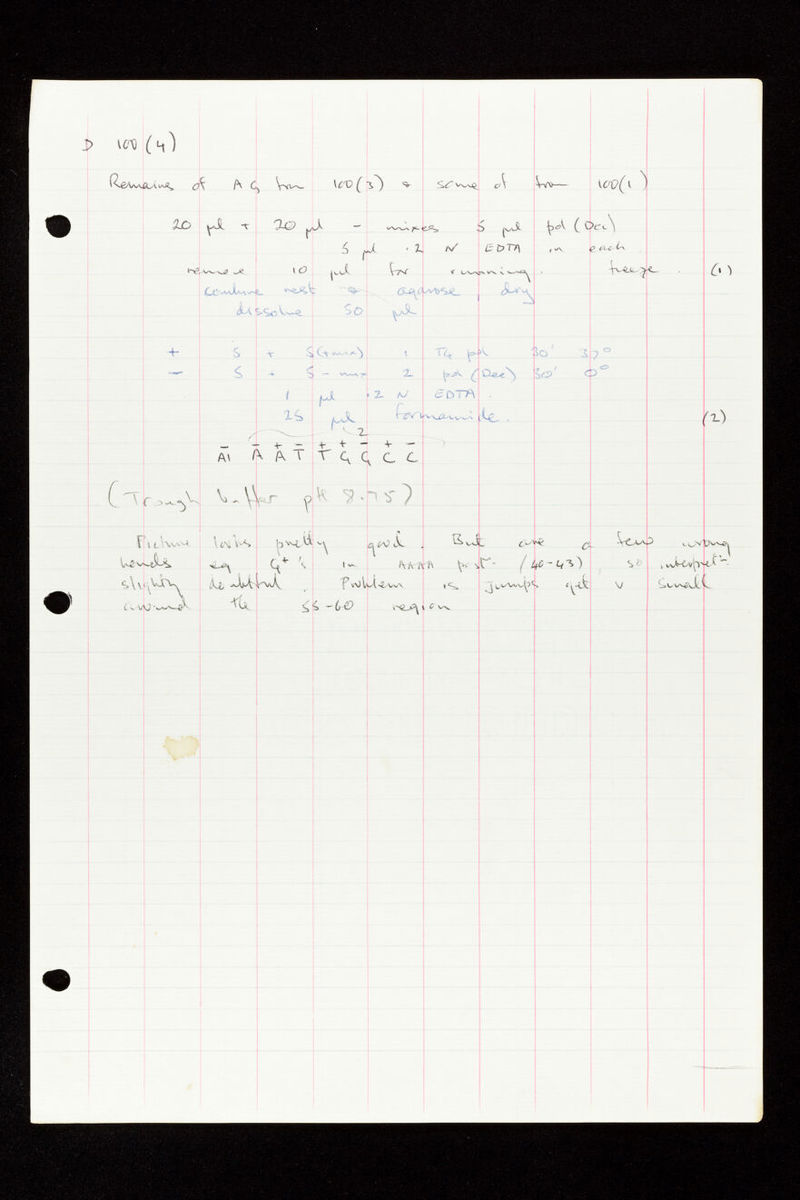 D 100(4)
Remains of AG from 100(3) + some of from 100(1)
20 µl + 20 µl - mixes 5 µl pol (Dec)
5 µl .2 N EDTA in each
remove 10 µl for running. freeze. (1)
combine rest → agarose, dry
dissolve 50 µl
+ 5 + 5(+mix) 1 T4 pol 30' 37°
- 5 + 5 - mix 2 pol (Dec) 30' 0°
1 µl .2 N EDTA.
25 µl formamide. (2)
2
- - + - + + - + -
A1 A A T T G G C C
(Trough buffer pH 8.75)
Picture looks pretty good. But are a few wrong
bands eg G+'s in AAAA post- (40-43), so interpretn
slightly doubtful. Problem is jumps get v small
around the 55-60 region